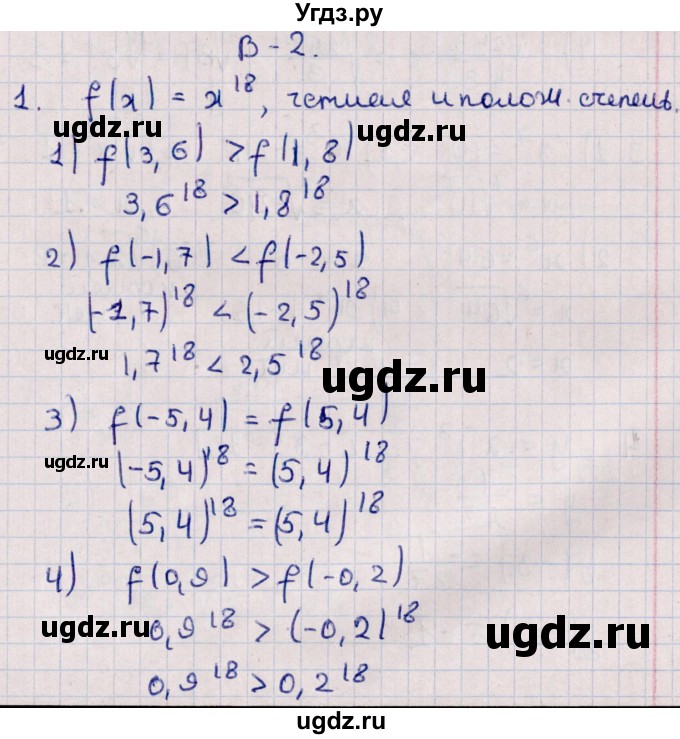 Угдз.ру
В - 2.
1. f(x) = x^18, четная и полож. степень.
ugdz.ru
ugdz.ru
1) f(3,6) > f(1,8)
3,6^18 > 1,8^18
2) f(-1,7) < f(-2,5)
(-1,7)^18 < (-2,5)^18
ugdz.ru
1,7^18 < 2,5^18
ugdz.ru
3) f(-5,4) = f(5,4)
ugdz.ru
(-5,4)^18 = (5,4)^18
(5,4)^18 = (5,4)^18
4) f(0,9) > f(-0,2)
ugdz.ru
0,9^18 > (-0,2)^18
ugdz.ru
0,9^18 > 0,2^18
ugdz.ru